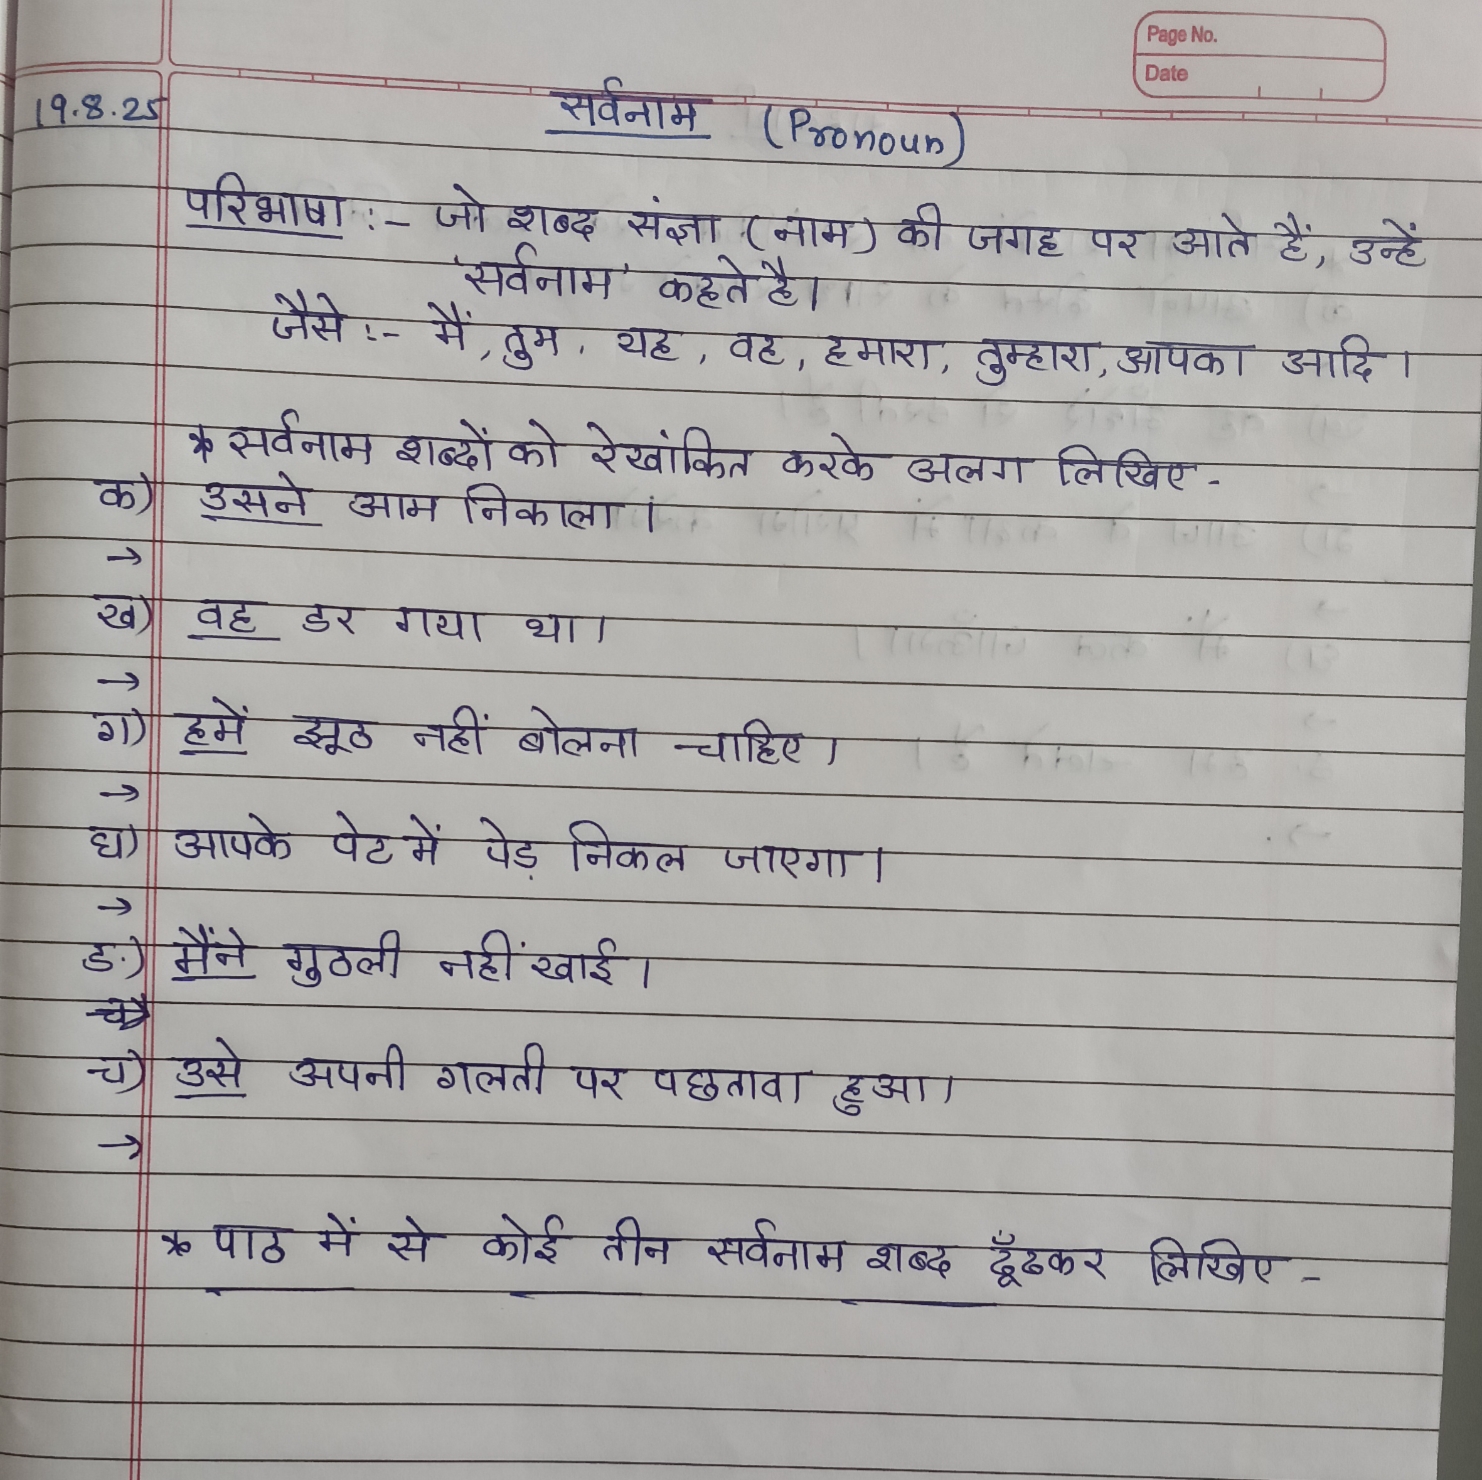 Page No.
Date
19.8.25
सर्वनाम (Pronoun)
परिभाषा :- जो शब्द संज्ञा (नाम) की जगह पर आते हैं, उन्हें
'सर्वनाम' कहते है।
जैसे :- मैं, तुम, यह, वह, हमारा, तुम्हारा, आपका आदि।
* सर्वनाम शब्दों को रेखांकित करके अलग लिखिए -
क) उसने आम निकाला।
→
ख) वह डर गया था।
→
ग) हमें झूठ नहीं बोलना चाहिए।
→
घ) आपके पेट में पेड़ निकल जाएगा।
→
ङ) मैंने गुठली नहीं खाई।
→
च) उसे अपनी गलती पर पछतावा हुआ।
→
* पाठ में से कोई तीन सर्वनाम शब्द ढूँढकर लिखिए -